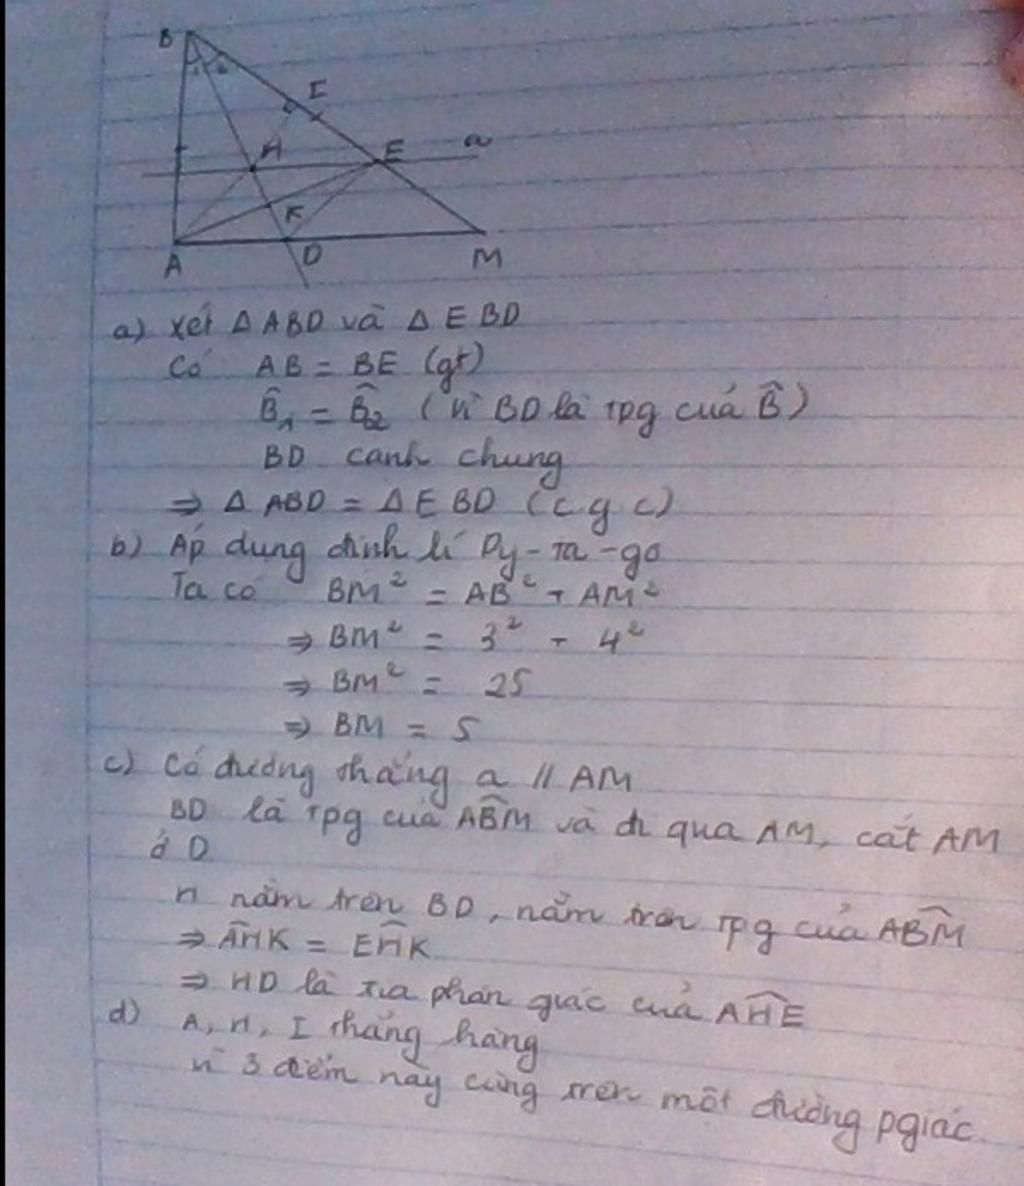 B
1 2
I
H
E
a
K
A
D
M
a) Xét Δ ABD và Δ EBD
Có AB = BE (gt)
B̂₁ = B̂₂ (vì BD là tpg của B̂)
BD cạnh chung
⇒ Δ ABD = Δ EBD (c.g.c)
b) Áp dụng định lí Py-ta-go
Ta có BM² = AB² + AM²
⇒ BM² = 3² + 4²
⇒ BM² = 25
⇒ BM = 5
c) Có đường thẳng a // AM
BD là tpg của ABM̂ và đi qua AM, cắt AM
ở D
H nằm trên BD, nằm trên tpg của ABM̂
⇒ AĤK = EĤK
⇒ HD là tia phân giác của AĤE
d) A, H, I thẳng hàng
vì 3 điểm này cùng trên một đường pgiác